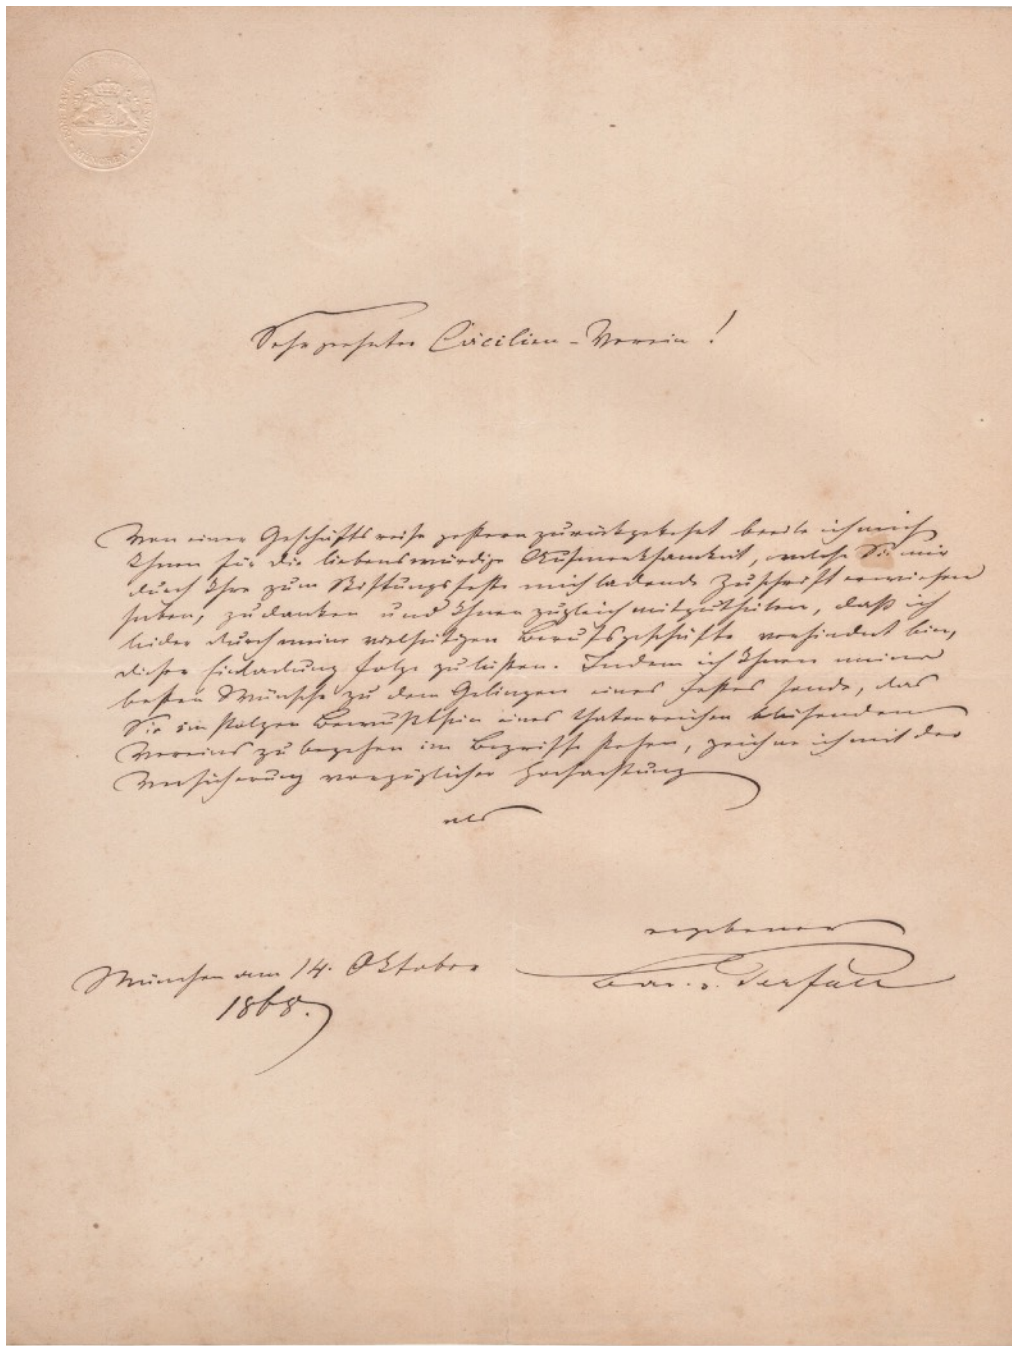 Sehr geehrter Cäcilien-Verein!
Von einer Geschäftsreise gestern zurückgekehrt beeile ich mich
Ihnen für die liebenswürdige Aufmerksamkeit, welche Sie mir
durch Ihre zum Stiftungsfeste mich ladende Zuschrift erwiesen
haben, zu danken und Ihnen zugleich mitzutheilen, daß ich
leider durch meine vielseitigen Berufsgeschäfte verhindert bin,
dieser Einladung folge zu leisten. Indem ich Ihnen meine
besten Wünsche zu dem Gelingen eines Festes sende, das
Sie im stolzen Bewußtsein eines thatenreichen blühenden
Vereins zu begehen im Begriffe stehen, zeichne ich mit der
Versicherung vorzüglicher Hochachtung
als
ergebener
München am 14. Oktober Bar. v. Perfall
1868.